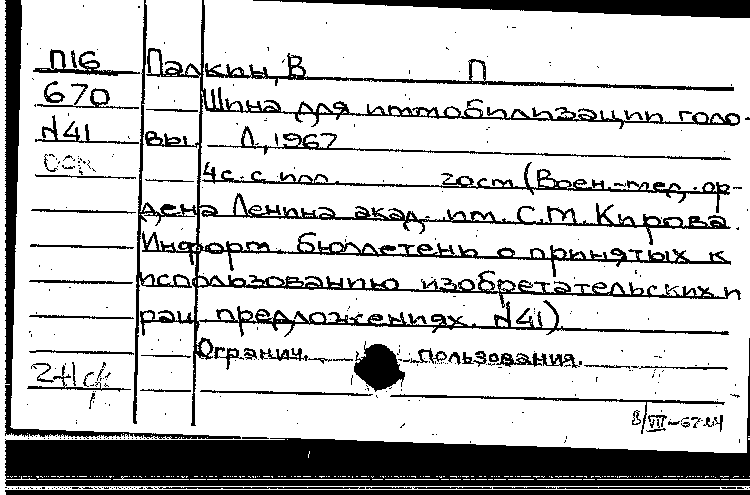 П16 Палкин, В П
670 Шина для иммобилизации голо-
N41 вы. Л., 1967
4с. с илл. 20см (Воен.-мед. ор-
дена Ленина акад. им. С.М. Кирова.
Информ. бюллетень о принятых к
использованию изобретательских и
рац. предложениях. N41)
Огранич. пользования.
8/VII-67